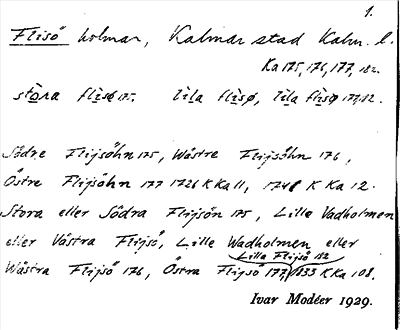 1.
Flisö holmar, Kalmar stad Kalm. l.
Ka 175, 176, 177, 182.
stora flisø 175. lila flisø, lila flisø 177,182.
Södre Flijsöhn 175, Wästre Flijsöhn 176,
Östre Flijsöhn 177 1726 K Ka 11, 1748 K Ka 12.
Stora eller Södra Flijsön 175, Lille Vadholmen
eller Västra Flijsö, Lille Wadholmen eller
Lilla Flijsö 182
Wästra Flijsö 176, Östra Flijsö 177, 1833 K Ka 108.
Ivar Modéer 1929.